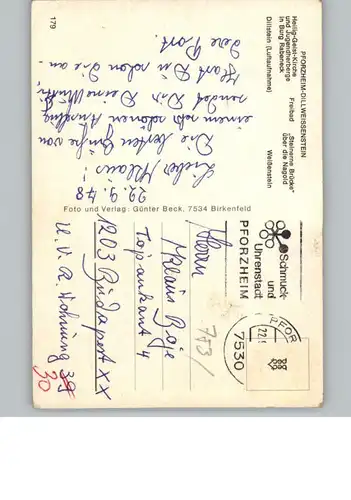 PFORZHEIM-DILLWEISSENSTEIN
Heilig-Geist-Kirche Freibad „Steinerne Brücke"
und Jugendherberge über die Nagold
in Burg Rabeneck
Dillstein (Luftaufnahme) Weißenstein
22.9.78
Lieber Klaus!
Die besten Grüße von
einem sehr schönen Ausflug
sendet Dir Deine
Hast Du schon die an-
dere Post.
179
Foto und Verlag: Günter Beck, 7534 Birkenfeld
Schmuck-
und
Uhrenstadt
PFORZHEIM
PFOR
22.9
7530
Herrn
Klaus Boje
4
1203 Budapest XX
U. V. R. 39
30
753/